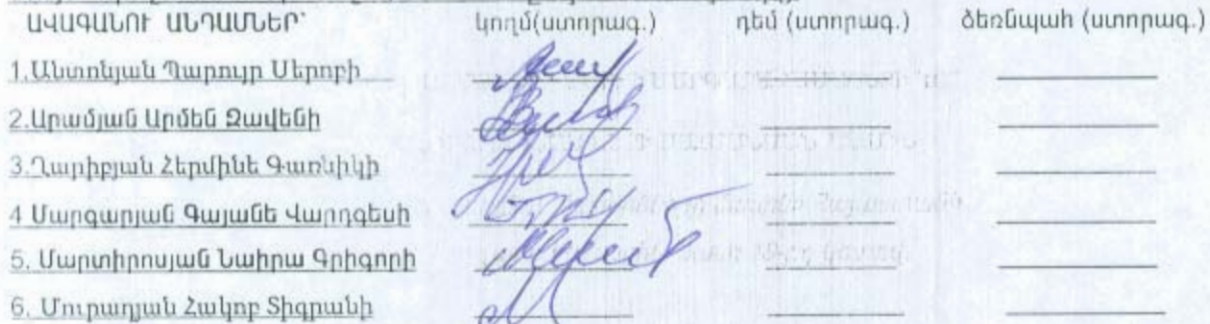 ԱՎԱԳԱՆՈՒ ԱՆԴԱՄՆԵՐ՝ կողմ(ստորագ.) դեմ (ստորագ.) ձեռնպահ (ստորագ.)
1.Անտոնյան Պարույր Սերոբի
2.Արամյան Արմեն Զավենի
3.Ղարիբյան Հերմինե Գառնիկի
4 Մարգարյան Գայանե Վարդգեսի
5. Մարտիրոսյան Նաիրա Գրիգորի
6. Մուրադյան Հակոբ Տիգրանի